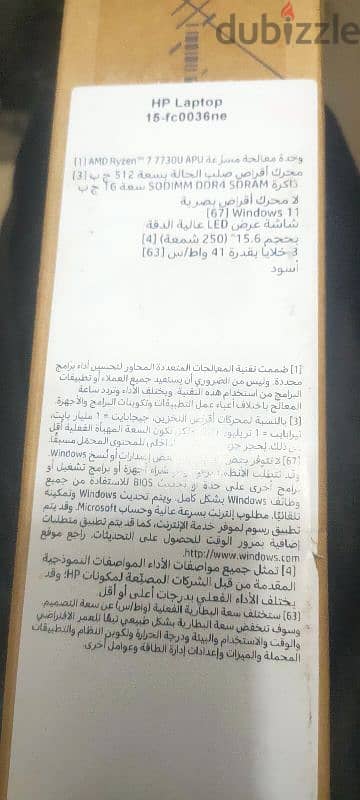 dubizzle
HP Laptop
15-fc0036ne
وحدة معالجة مسرّعة AMD Ryzen™ 7 7730U APU [1]
محرك أقراص صلب الحالة بسعة 512 ج ب [3]
ذاكرة SODIMM DDR4 SDRAM سعة 16 ج ب
لا محرك أقراص بصرية
Windows 11 [67]
شاشة عرض LED عالية الدقة
بحجم 15.6" (250 شمعة) [4]
3 خلايا بقدرة 41 واط/س [63]
أسود
[1] صُممت تقنية المعالجات المتعددة المحاور لتحسين أداء برامج
محددة. وليس من الضروري أن يستفيد جميع العملاء أو تطبيقات
البرامج من استخدام هذه التقنية. ويختلف الأداء وتردد ساعة
المعالج باختلاف أعباء عمل التطبيقات وتكوينات البرامج والأجهزة.
[3] بالنسبة لمحركات أقراص التخزين، جيجابايت = 1 مليار بايت،
تيرابايت = 1 تريليون تكون السعة المهيأة الفعلية أقل
من ذلك. يُحجز داخلي للمحتوى المحمل مسبقًا.
[67] لا تتوفر بعض بعض إصدارات أو نُسخ Windows.
وقد تتطلب الأنظمة شراء أجهزة أو برامج تشغيل أو
برامج أخرى على حدة أو تحديث BIOS للاستفادة من جميع
وظائف Windows بشكل كامل. ويتم تحديث Windows وتمكينه
تلقائيًا. مطلوب إنترنت بسرعة عالية وحساب Microsoft. وقد يتم
تطبيق رسوم لموفر خدمة الإنترنت، كما قد يتم تطبيق متطلبات
إضافية بمرور الوقت للحصول على التحديثات. راجع موقع
http://www.windows.com.
[4] تمثل جميع مواصفات الأداء المواصفات النموذجية
المقدمة من قبل الشركات المصنّعة لمكونات HP؛ وقد
يختلف الأداء الفعلي بدرجات أعلى أو أقل.
[63] ستختلف سعة البطارية الفعلية (واط/س) عن سعة التصميم.
وسوف تنخفض سعة البطارية بشكل طبيعي تبعًا للعمر الافتراضي
والوقت والاستخدام والبيئة ودرجة الحرارة وتكوين النظام والتطبيقات
المحملة والميزات وإعدادات إدارة الطاقة وعوامل أخرى.